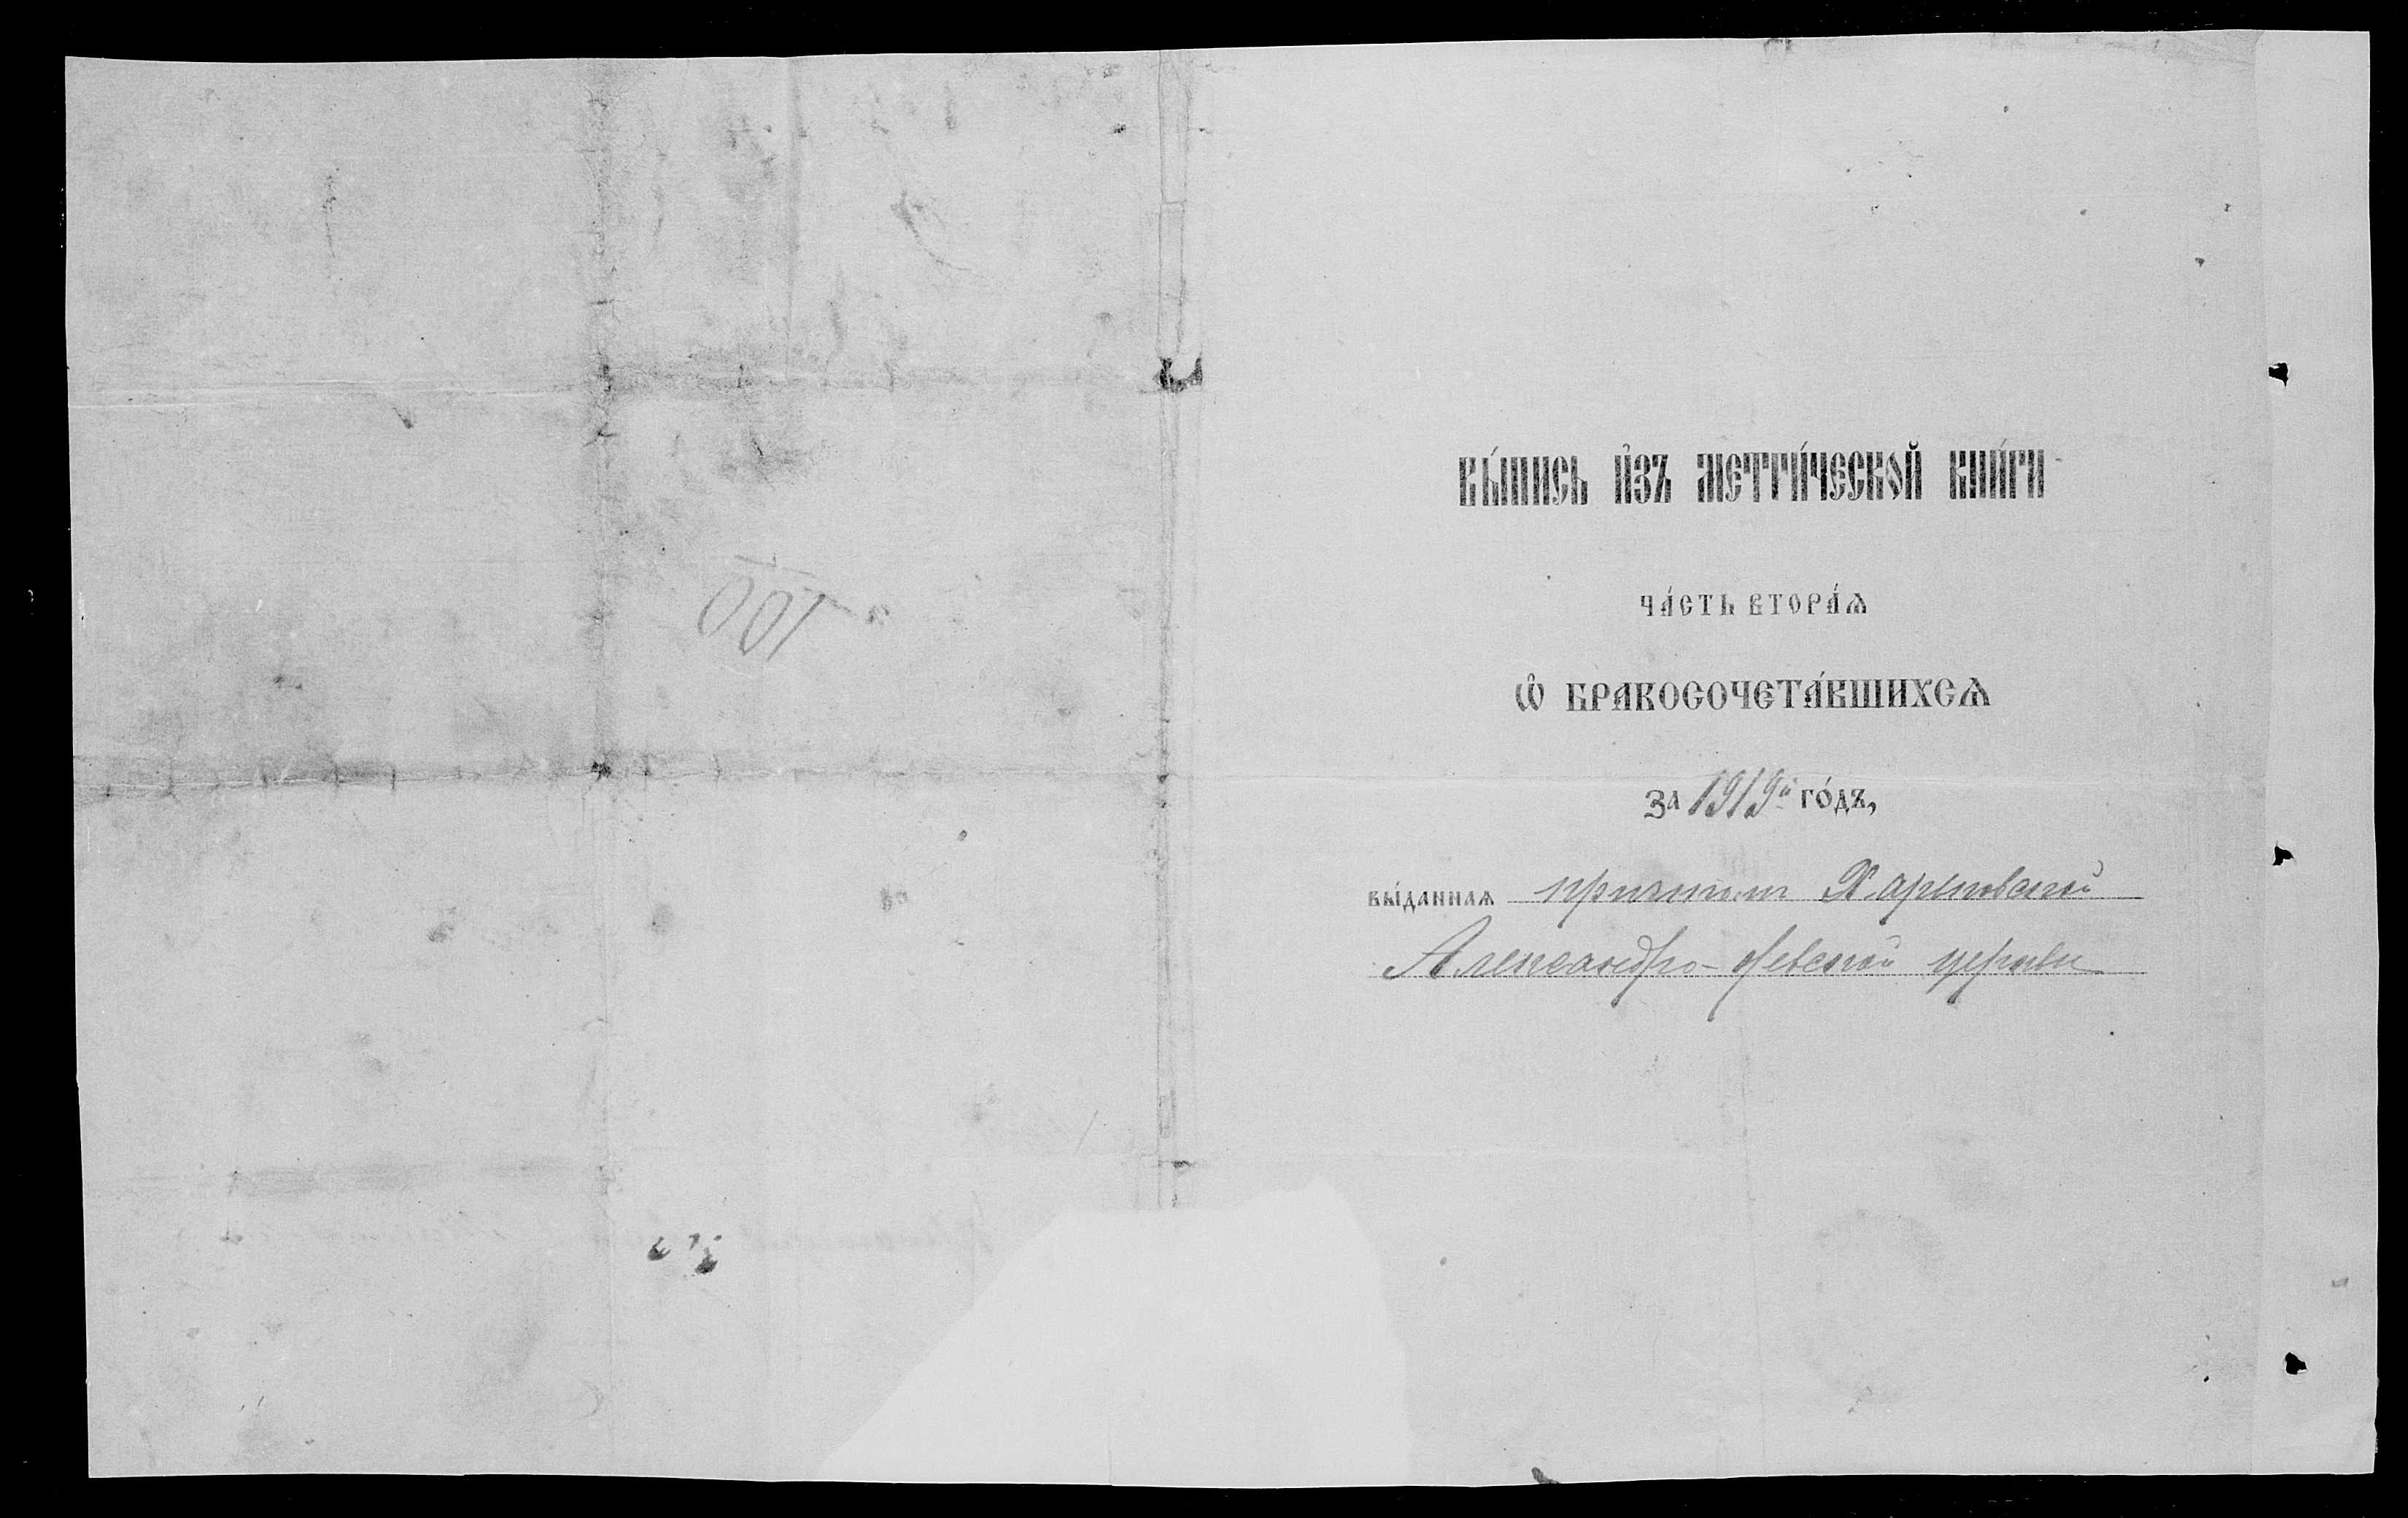 100
ВЫ́ПИСЬ И҆ЗЪ МЕТРИ́ЧЕСКОЙ КНИ́ГИ
ЧА́СТЬ ВТОРА́Ѧ
Ѡ҆ БРАКОСОЧЕТА́ВШИХСѦ
ЗА 1919й ГО́ДЪ,
ВЫ́ДАННАѦ причтом Харьковской
Александро-Невской церкви